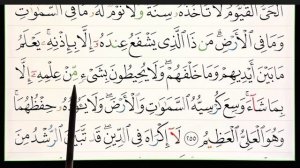 الْحَيُّ الْقَيُّومُ لَا تَأْخُذُهُ سِنَةٌ وَلَا نَوْمٌ لَهُ مَا فِي السَّمَاوَاتِ
وَمَا فِي الْأَرْضِ مَنْ ذَا الَّذِي يَشْفَعُ عِنْدَهُ إِلَّا بِإِذْنِهِ يَعْلَمُ
مَا بَيْنَ أَيْدِيهِمْ وَمَا خَلْفَهُمْ وَلَا يُحِيطُونَ بِشَيْءٍ مِنْ عِلْمِهِ إِلَّا
بِمَا شَاءَ وَسِعَ كُرْسِيُّهُ السَّمَاوَاتِ وَالْأَرْضَ وَلَا يَئُودُهُ حِفْظُهُمَا
وَهُوَ الْعَلِيُّ الْعَظِيمُ ٢٥٥ لَا إِكْرَاهَ فِي الدِّينِ قَدْ تَبَيَّنَ الرُّشْدُ مِنَ